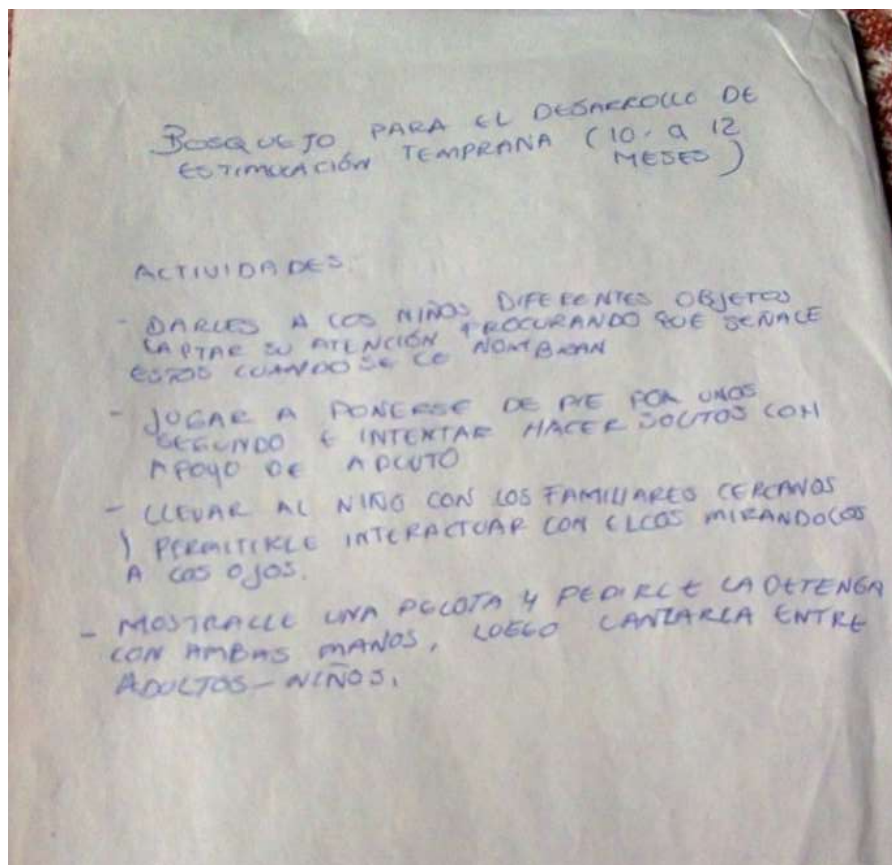 BOSQUEJO PARA EL DESARROLLO DE
ESTIMULACIÓN TEMPRANA (10. a 12
MESES)
ACTIVIDADES:
- DARLES A LOS NIÑOS DIFERENTES OBJETOS
CAPTAR SU ATENCIÓN PROCURANDO QUE SEÑALE
ESTOS CUANDO SE LE NOMBRAN
- JUGAR A PONERSE DE PIE POR UNOS
SEGUNDO E INTENTAR HACER SOLITOS CON
APOYO DE ADULTO
- LLEVAR AL NIÑO CON LOS FAMILIARES CERCANOS
Y PERMITIRLE INTERACTUAR CON ELLOS MIRANDOLOS
A LOS OJOS.
- MOSTRALLE UNA PELOTA Y PEDIRLE LA DETENGA
CON AMBAS MANOS, LUEGO LANZARLA ENTRE
ADULTOS-NIÑOS.